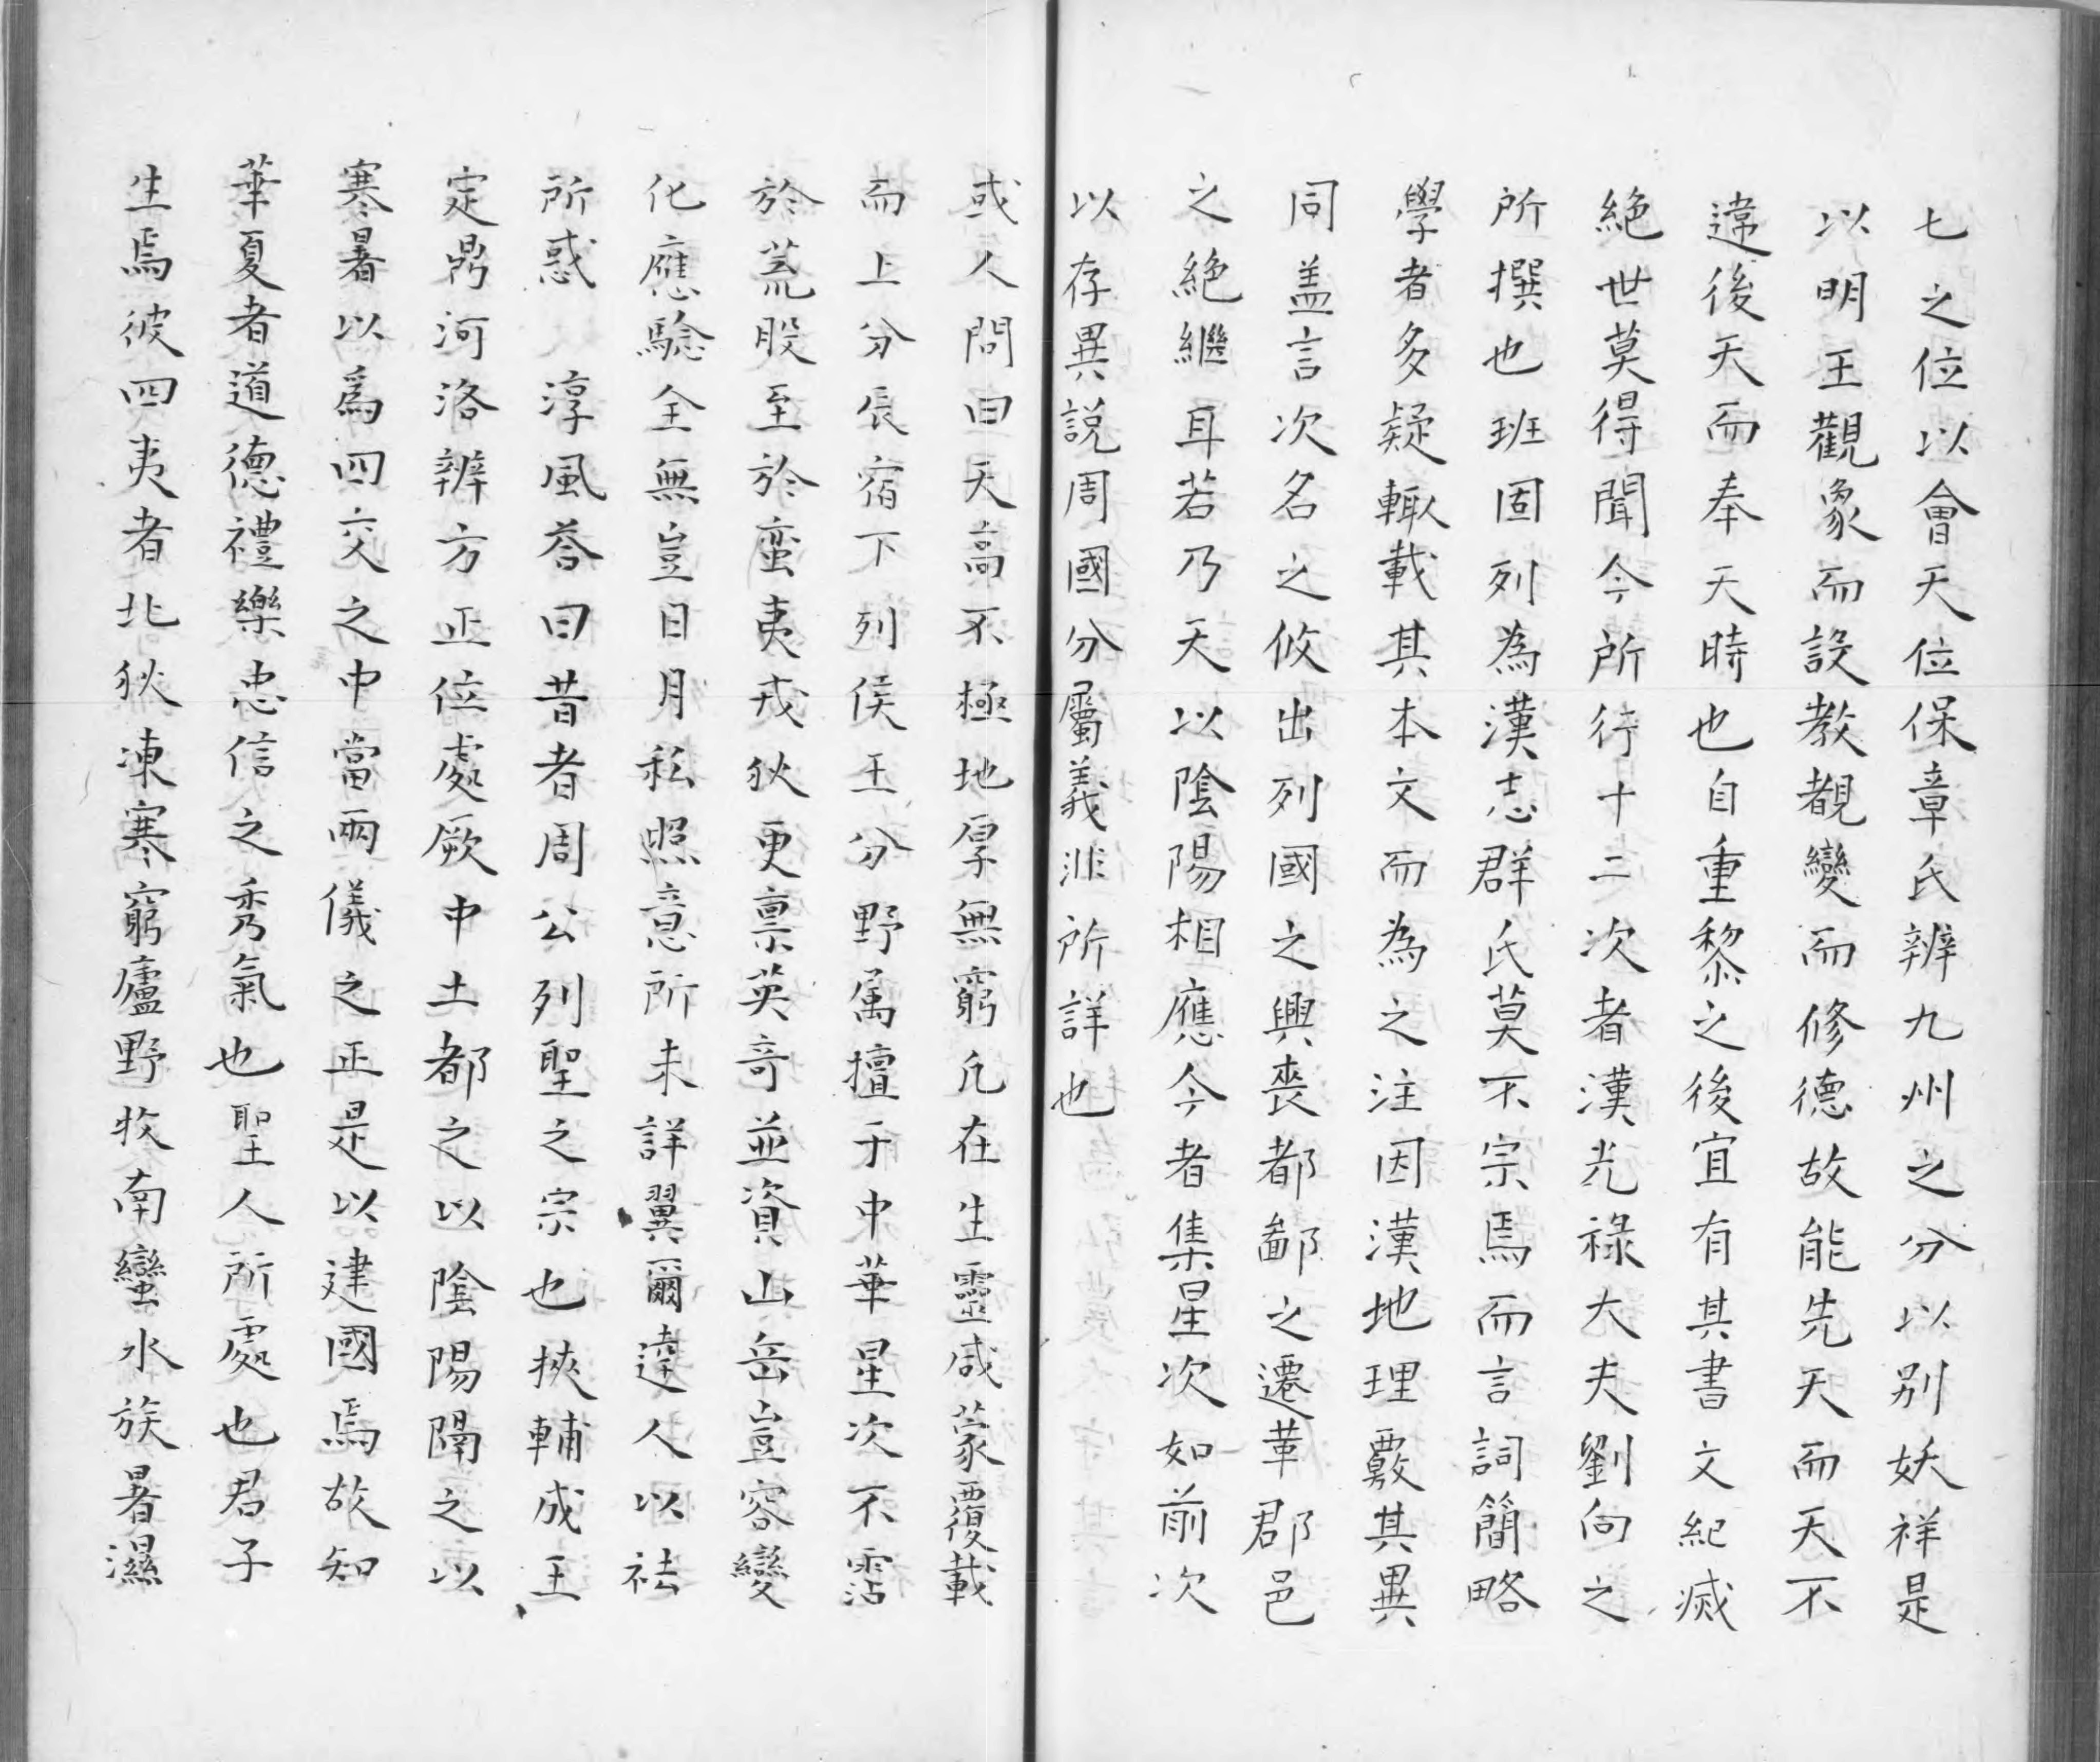 七之位以會天位保章氏辨九州之分以别妖祥是
以明王觀象而設教覩變而修德故能先天而天不
違後天而奉天時也自重黎之後宜有其書文紀滅
絶世莫得聞今所行十二次者漢光祿大夫劉向之
所撰也班固列為漢志群氏莫不宗焉而言詞簡略
學者多疑輙載其本文而為之注因漢地理覈其異
同盖言次名之攸出列國之興喪都鄙之遷革郡邑
之絶繼耳若乃天以陰陽相應今者集星次如前次
以存異説周國分屬義非所詳也
或人問曰天高不極地厚無窮凢在生靈咸蒙覆載
而上分辰宿下列侯王分野属擅于中華星次不霑
於荒服至於蛮夷戎狄更禀英奇並資山岳豈容變
化應驗全無豈日月私照意所未詳翼爾達人以祛
所惑　淳風荅曰昔者周公列聖之宗也挾輔成王
定鼎河洛辨方正位處厥中土都之以陰陽隔之以
寒暑以爲四交之中當兩儀之正是以建國焉故知
華夏者道德禮樂忠信之秀氣也聖人所處也君子
生焉彼四夷者北狄凍寒窮廬野牧南蠻水族暑濕